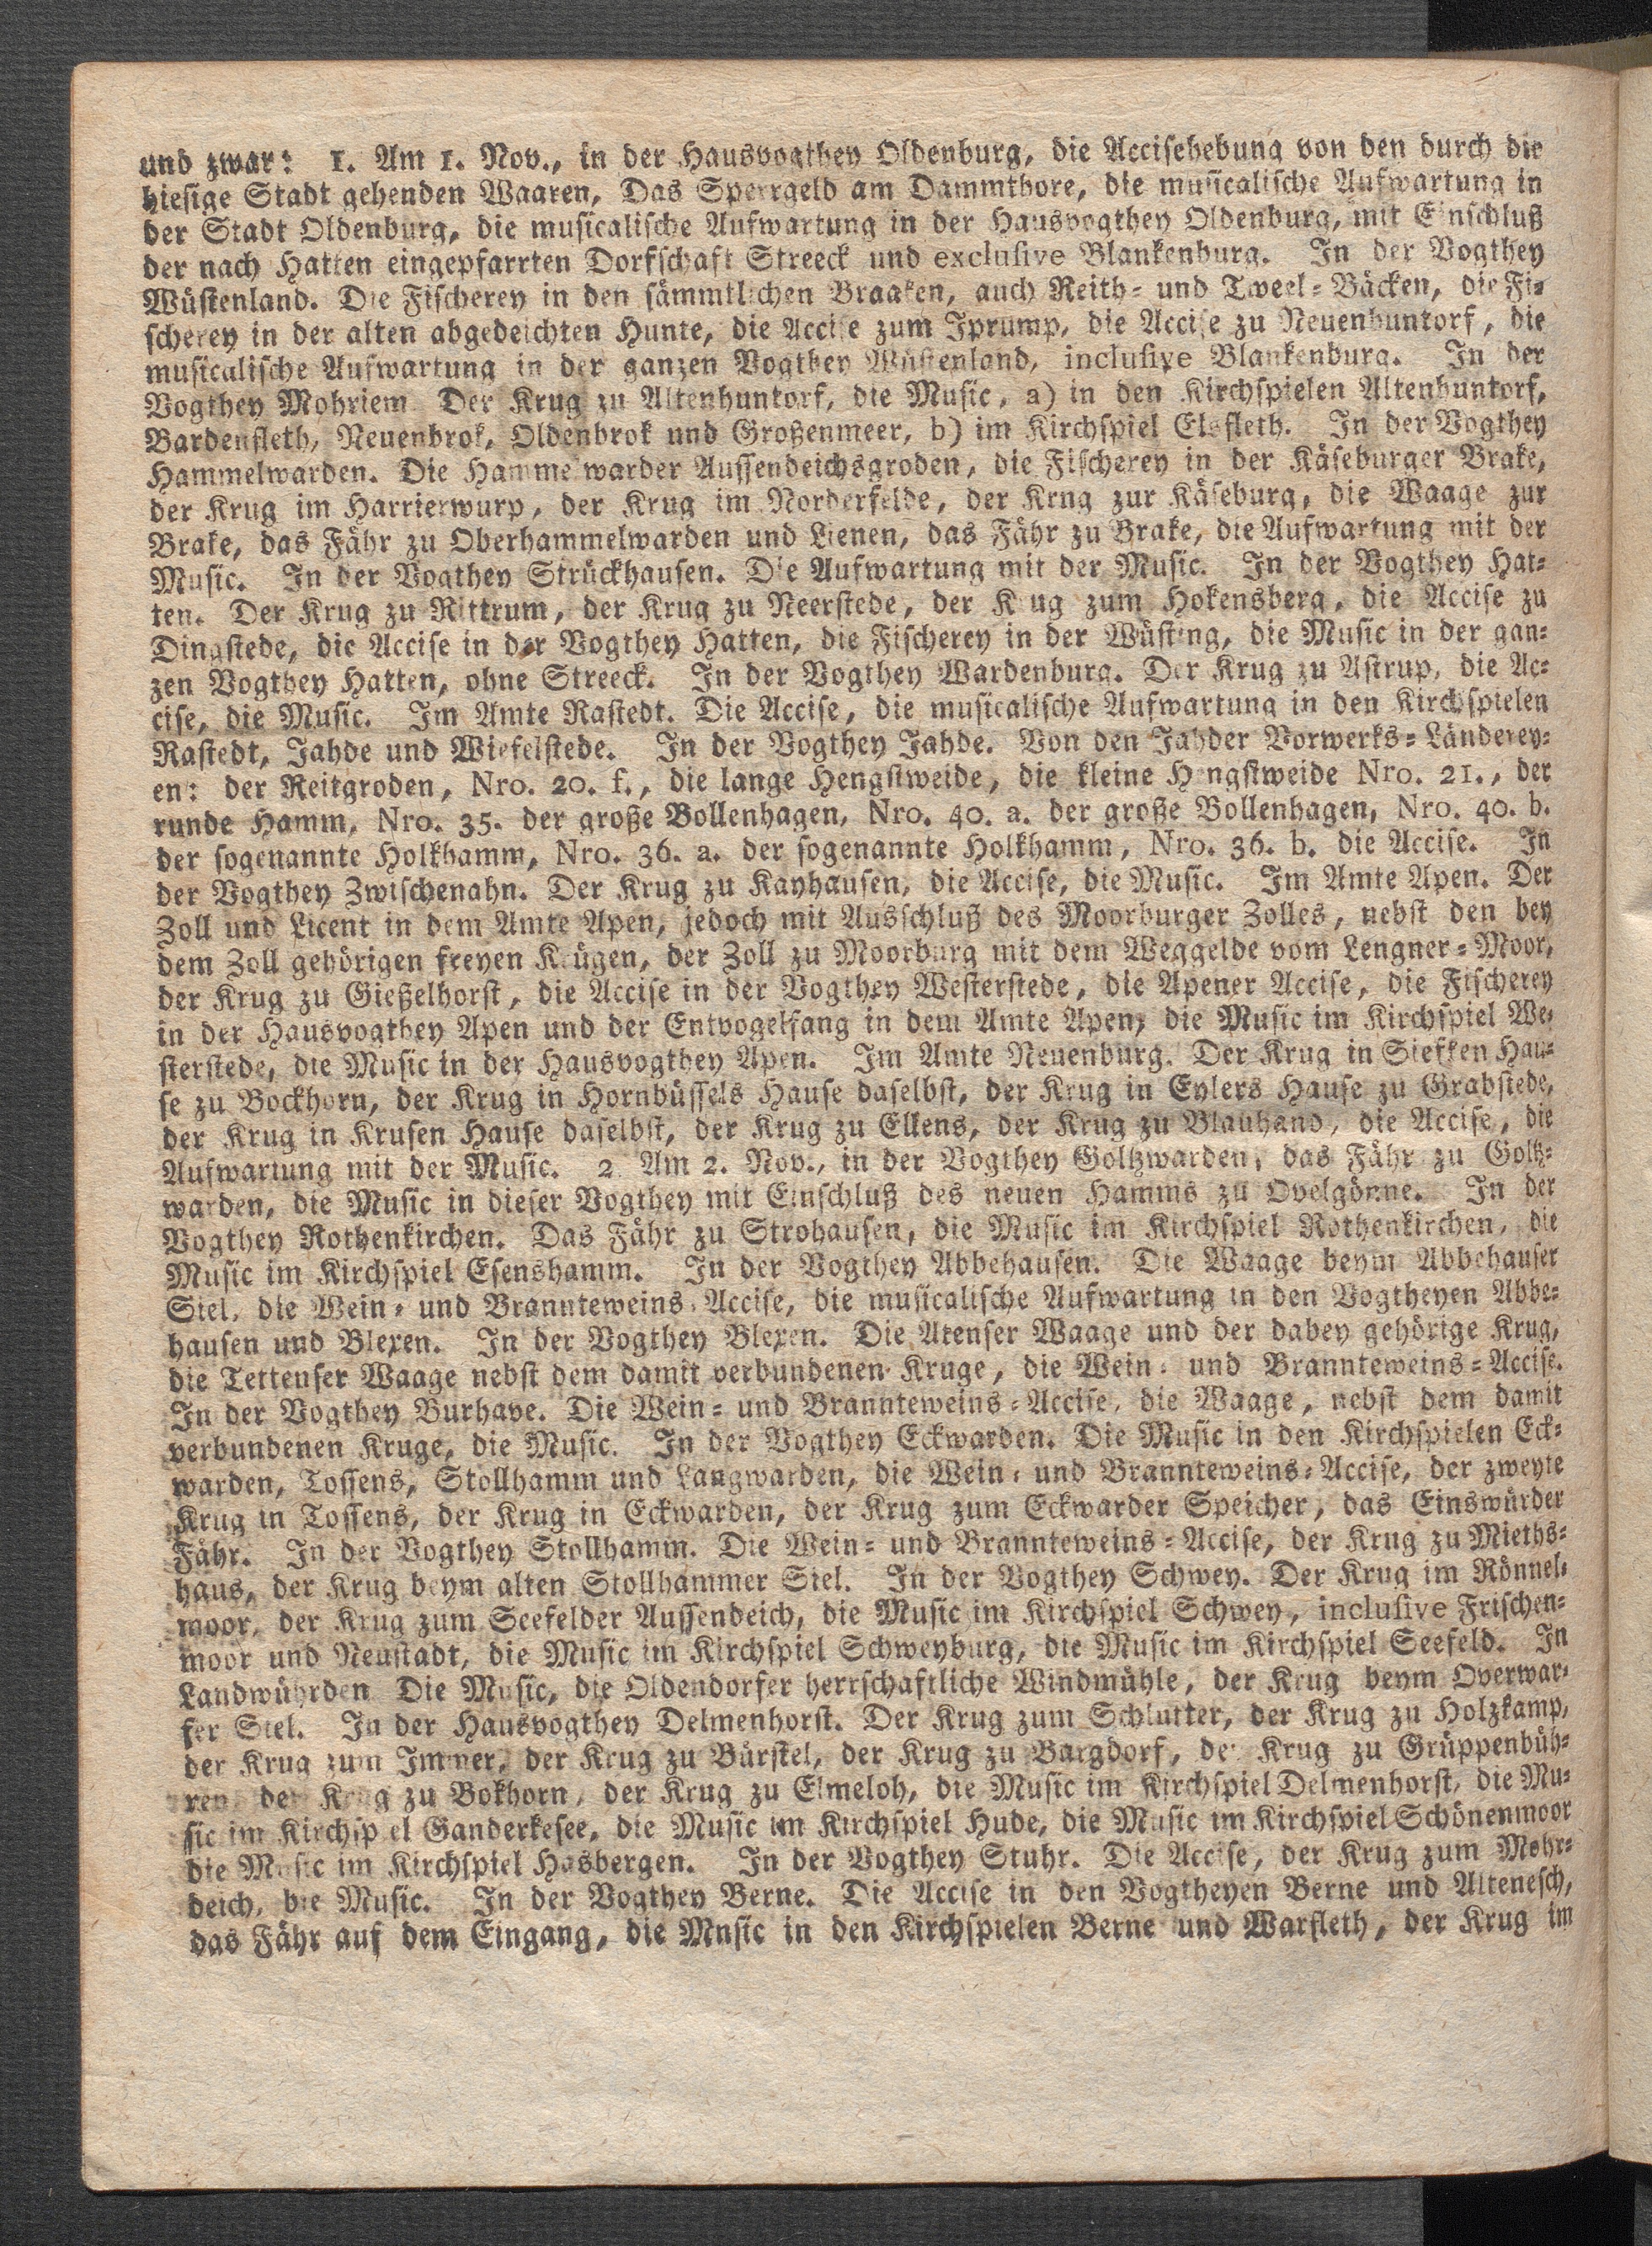 und zwar: 1. Am 1. Nov., in der Hausvogthey Oldenburg, die Accisehebung von den durch die
hiesige Stadt gehenden Waaren, Das Sperrgeld am Dammthore, die musicalische Aufwartung in
der Stadt Oldenburg, die musicalische Aufwartung in der Hausvogthey Oldenburg, mit Einschluß
der nach Hatten eingepfarrten Dorfschaft Streeck und exclusive Blankenburg. In der Vogthey
Wüstenland. Die Fischerey in den sämmtlichen Braaken, auch Reith- und Tweel-Bäcken, die Fi-
scherey in der alten abgedeichten Hunte, die Accise zum Iprump, die Accise zu Neuenhuntorf, die
musicalische Aufwartung in der ganzen Vogthey Wüstenland, inclusive Blankenburg. In der
Vogthey Mohriem Der Krug zu Altenhuntorf, die Music, a) in den Kirchspielen Altenhuntorf,
Bardenfleth, Neuenbrok, Oldenbrok und Großenmeer, b) im Kirchspiel Elsfleth. In der Vogthey
Hammelwarden. Die Hammelwarder Aussendeichsgroden, die Fischerey in der Käseburger Brake,
der Krug im Harrierwurp, der Krug im Norderfelde, der Krng zur Käseburg, die Waage zur
Brake, das Fähr zu Oberhammelwarden und Lienen, das Fähr zu Brake, die Aufwartung mit der
Music. In der Vogthey Strückhausen. Die Aufwartung mit der Music. In der Vogthey Hat-
ten. Der Krug zu Rittrum, der Krug zu Neerstede, der Krug zum Hokensberg, die Accise zu
Dingstede, die Accise in der Vogthey Hatten, die Fischerey in der Wüsting, die Music in der gan-
zen Vogthey Hatten, ohne Streeck. In der Vogthey Wardenburg. Der Krug zu Astrup, die Ac-
cise, die Music. Im Amte Rastedt. Die Accise, die musicalische Aufwartung in den Kirchspielen
Rastedt, Jahde und Wiefelstede. In der Vogthey Jahde. Von den Jahder Vorwerks-Länderey-
en: der Reitgroden, Nro. 20. f., die lange Hengstweide, die kleine Hengstweide Nro. 21., der
runde Hamm, Nro. 35. der große Bollenhagen, Nro. 40. a. der große Bollenhagen, Nro. 40. b.
der sogenannte Holkhamm, Nro. 36. a. der sogenannte Holkhamm, Nro. 36. b. die Accise. In
der Vogthey Zwischenahn. Der Krug zu Kayhausen, die Accise, die Music. Im Amte Apen. Der
Zoll und Licent in dem Amte Apen, jedoch mit Ausschluß des Moorburger Zolles, nebst den bey
dem Zoll gehörigen freyen Krügen, der Zoll zu Moorburg mit dem Weggelde vom Lengner-Moor,
der Krug zu Gießelhorst, die Accise in der Vogthey Westerstede, die Apener Accise, die Fischerey
in der Hausvogthey Apen und der Entvogelfang in dem Amte Apen, die Music im Kirchspiel We-
sterstede, die Music in der Hausvogthey Apen. Im Amte Neuenburg. Der Krug in Siefken Hau-
se zu Bockhorn, der Krug in Hornbüssels Hause daselbst, der Krug in Eylers Hause zu Grabstede,
der Krug in Krusen Hause daselbst, der Krug zu Ellens, der Krug zu Blauhand, die Accise, die
Aufwartung mit der Music. 2 Am 2. Nov., in der Vogthey Goltzwarden, das Fähr zu Goltz-
warden, die Music in dieser Vogthey mit Einschluß des neuen Hamms zu Ovelgönne. In der
Vogthey Rothenkirchen. Das Fähr zu Strohausen, die Music im Kirchspiel Rothenkirchen, die
Music im Kirchspiel Esenshamm. In der Vogthey Abbehausen. Die Waage beym Abbehauser
Siel, die Wein- und Brannteweins-Accise, die musicalische Aufwartung in den Vogtheyen Abbe-
hausen und Blexen. In der Vogthey Blexen. Die Atenser Waage und der dabey gehörige Krug,
die Tettenser Waage nebst dem damit verbundenen Kruge, die Wein- und Brannteweins-Accise.
In der Vogthey Burhave. Die Wein- und Brannteweins-Accise, die Waage, nebst dem damit
verbundenen Kruge, die Music. In der Vogthey Eckwarden. Die Music in den Kirchspielen Eck-
warden, Tossens, Stollhamm und Langwarden, die Wein- und Brannteweins-Accise, der zweyte
Krug in Tossens, der Krug in Eckwarden, der Krug zum Eckwarder Speicher, das Einswürder
Fähr. In der Vogthey Stollhamm. Die Wein- und Brannteweins-Accise, der Krug zu Mieths-
haus, der Krug beym alten Stollhammer Siel. In der Vogthey Schwey. Der Krug im Rönnel-
moor, der Krug zum Seefelder Aussendeich, die Music im Kirchspiel Schwey, inclusive Frischen-
moor und Neustadt, die Music im Kirchspiel Schweyburg, die Music im Kirchspiel Seefeld. In
Landwührden Die Music, die Oldendorfer herrschaftliche Windmühle, der Krug beym Overwar-
fer Siel. In der Hausvogthey Delmenhorst. Der Krug zum Schlutter, der Krug zu Holzkamp,
der Krug zum Immer, der Krug zu Bürstel, der Krug zu Bargdorf, der Krug zu Grüppenbüh-
ren, der Krug zu Bokhorn, der Krug zu Elmeloh, die Music im Kirchspiel Delmenhorst, die Mu-
sic im Kirchspiel Ganderkesee, die Music im Kirchspiel Hude, die Music im Kirchspiel Schönenmoor
die Music im Kirchspiel Hasbergen. In der Vogthey Stuhr. Die Accise, der Krug zum Mohr-
deich, die Music. In der Vogthey Berne. Die Accise in den Vogtheyen Berne und Altenesch,
das Fähr auf dem Eingang, die Music in den Kirchspielen Berne und Warfleth, der Krug im